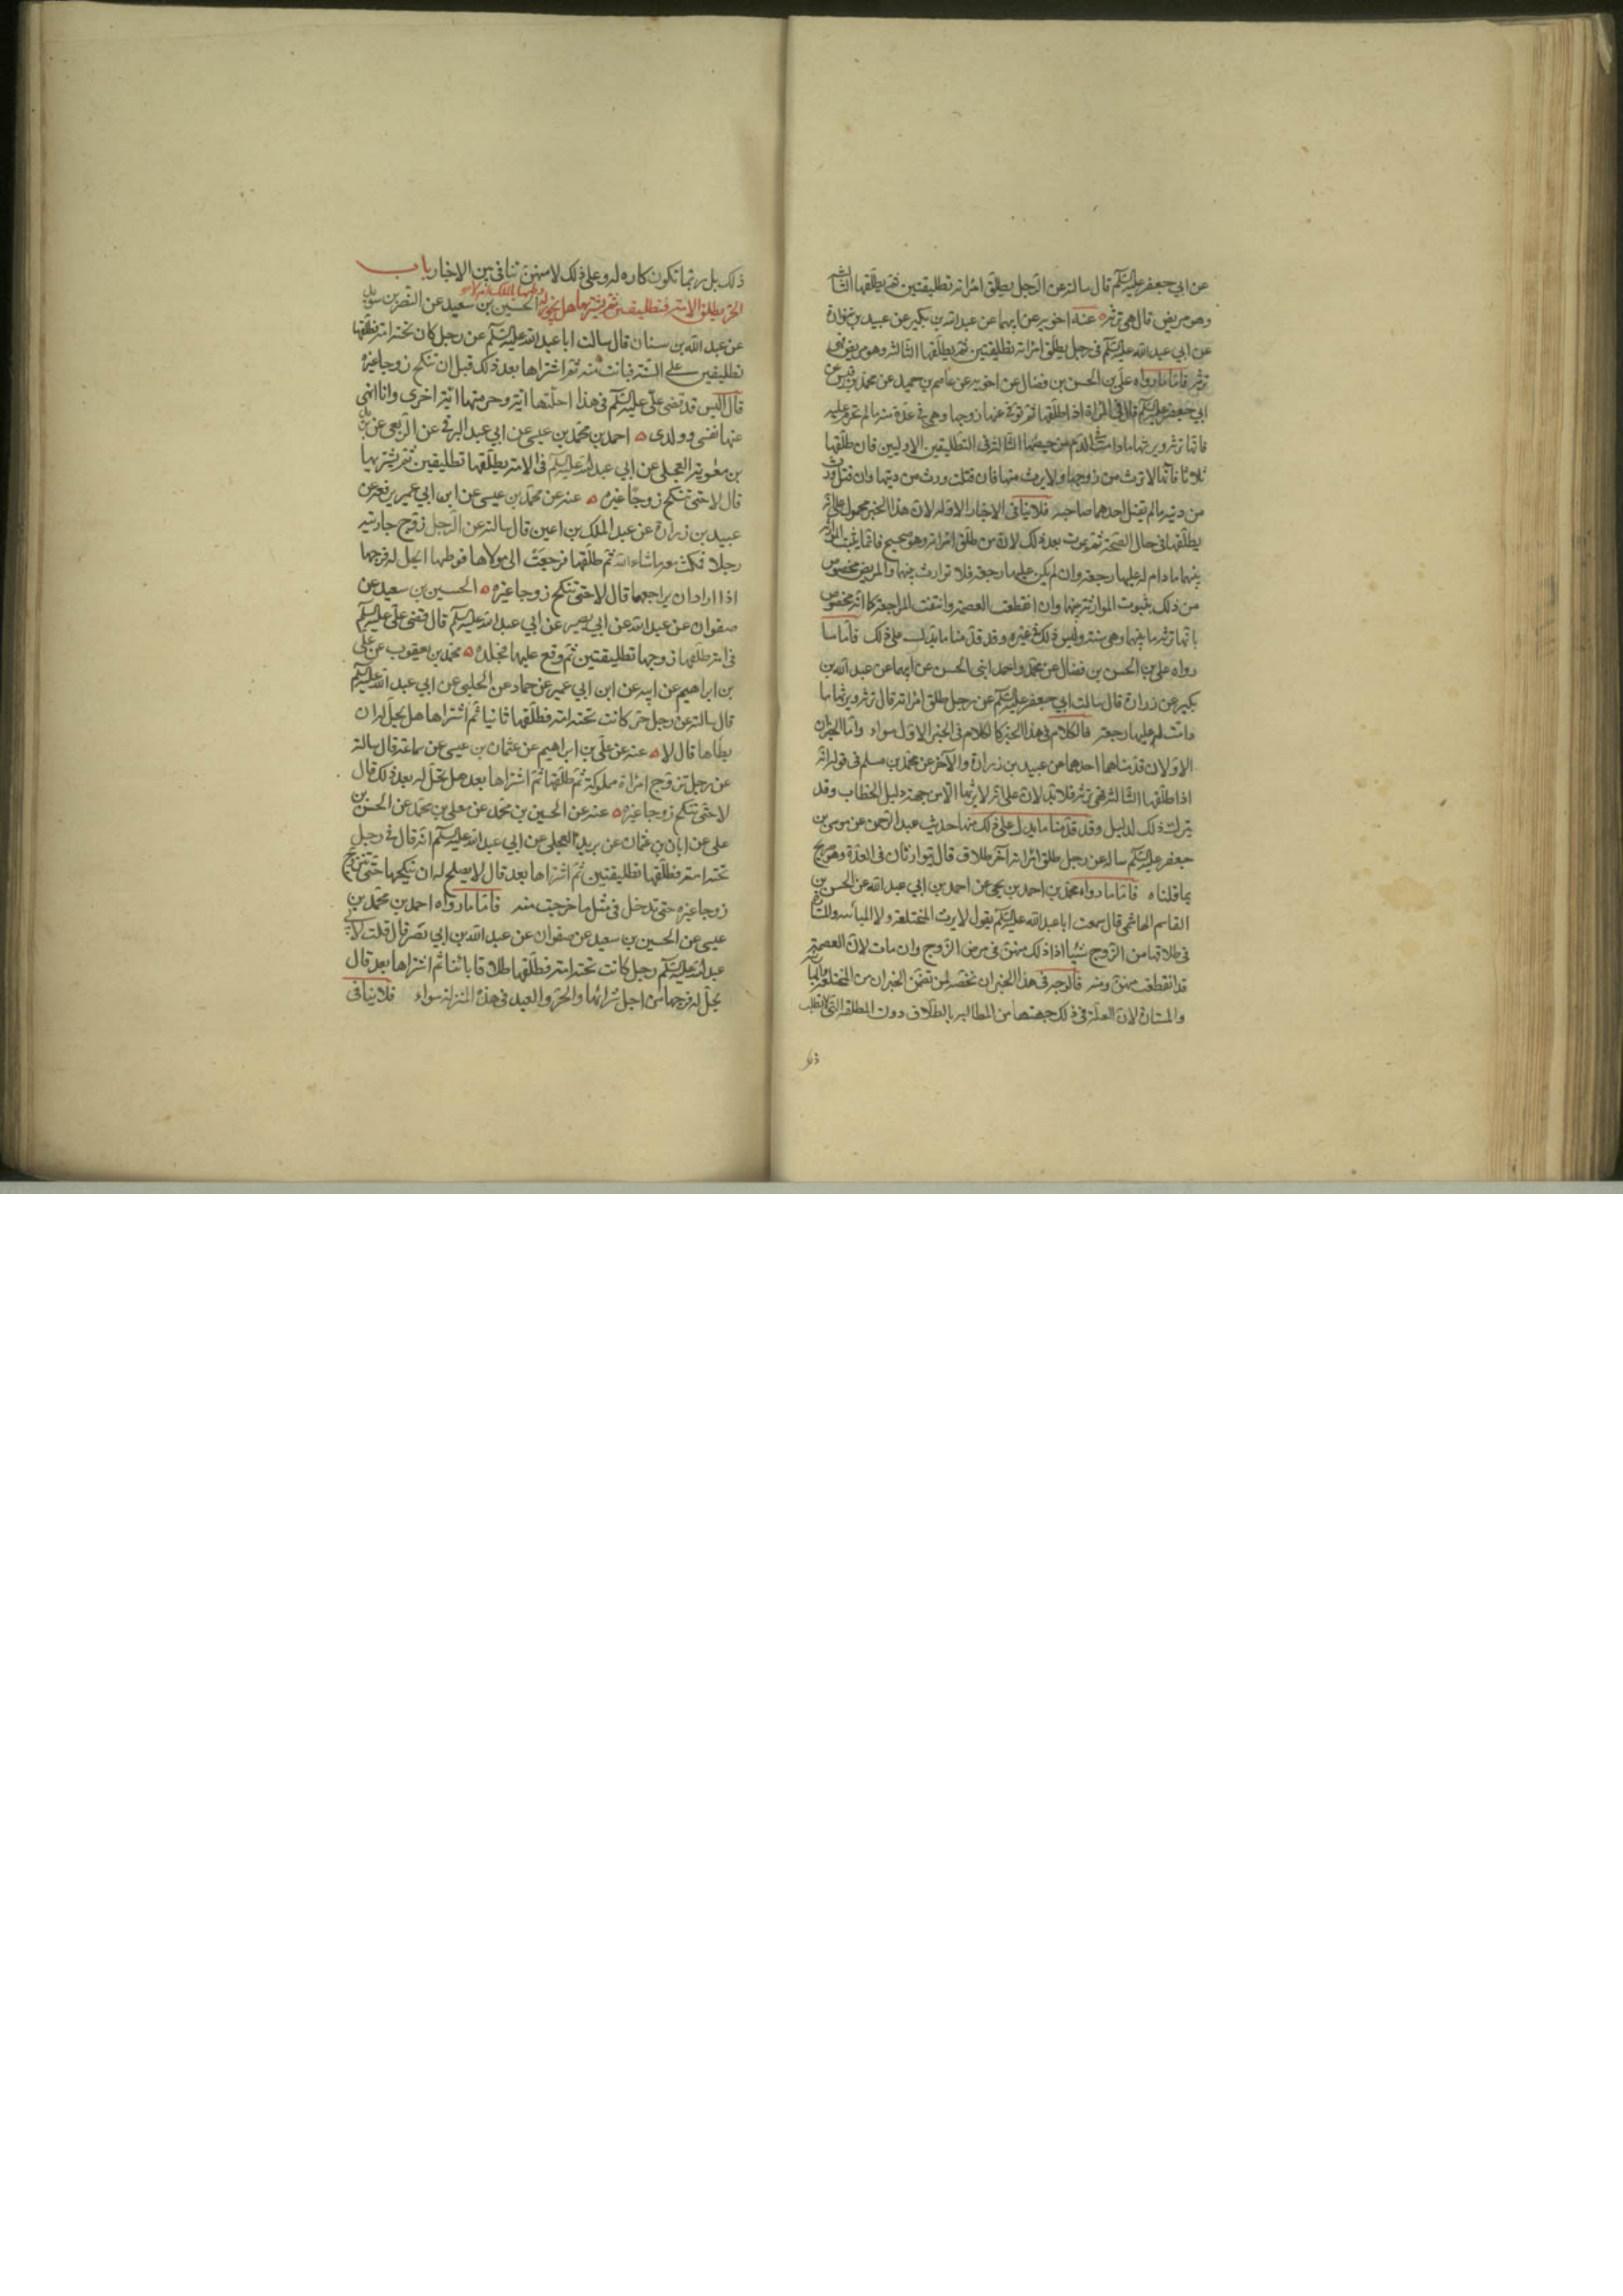 عن ابي جعفر عليه السلم قال سالته عن الرجل يطلق امراته تطليقتين ثم يطلقها الثالثة
وهو مريض قال هي ترثه عنه اخويه عن ابيهما عن عبد الله بن بكير عن عبيد بن زرارة
عن ابي عبد الله عليه السلم في رجل يطلق امراته تطليقتين ثم يطلقها الثالثة وهو مريض فهي
ترثه فاما ما رواه علي بن الحسن بن فضال عن اخويه عن عاصم بن حميد عن محمد بن قيس عن
ابي جعفر عليه السلم قال في المراة اذا طلقها ثم توفي عنها زوجها وهي في عدة منه ما لم تحرم عليه
فانها ترثه ويرثها ما دامت في الدم من حيضتها الثالثة في التطليقتين الاوليين فان طلقها
ثلاثا فانها لا ترث من زوجها ولا يرث منها فان قتلت ورث من ديتها وان قتل ورثت
من ديته ما لم يقتل احدهما صاحبه فلا ينافي الاخبار الاولة لان هذا الخبر محمول على انه
يطلقها في حال الصحة ثم يموت بعد ذلك لان من طلق امراته وهو صحيح فانما يثبت الموارثة
بينهما ما دام له عليها رجعة وان لم يكن عليها رجعة فلا توارث بينهما والمريض مخصوص
من ذلك بثبوت الموارثة بينها وان انقطعت العصمة وانتفت المراجعة كما انه مخصوص
بانها ترثه ما بينها وهي سنة وليس ذلك في غيره وقد قدمنا ما يدل على ذلك فاما ما
رواه علي بن الحسن بن فضال عن محمد واحمد ابني الحسن عن ابيهما عن عبد الله بن
بكير عن زرارة قال سالت ابي جعفر عليه السلم عن رجل طلق امراته قال ترثه ويرثها ما
دامت له عليها رجعة فالكلام في هذا الخبر كالكلام في الخبر الاول سواء واما الخبران
الاولان قدمناهما احدهما عن عبيد بن زرارة والآخر عن محمد بن مسلم في قوله انه
اذا طلقها الثالثة فهي ترثه فلا يدلان على انه لا يرثها الا من جهة دليل الخطاب وقد
يترك ذلك لدليل وقد قدمنا ما يدل على ذلك منها حديث عبد الرحمن عن موسى بن
جعفر عليه السلم ساله عن رجل طلق امراته آخر طلاق قال يتوارثان في العدة وهو صريح
بما قلناه فاما ما رواه محمد بن احمد بن يحيى عن احمد بن ابي عبد الله عن الحسن بن
القاسم الهاشمي قال سمعت ابا عبد الله عليه السلم يقول لا يرث المختلعة ولا المباراة والمستامرة
في طلاقها من الزوج شيئا اذا ذلك منهن في مرض الزوج وان مات لان العصمة
قد انقطعت منهن ومنه فالوجه في هذا الخبر ان نخصه بمن تضمن الخبر ان من المختلعة والمباراة
والمستامرة لان العلة في ذلك جهتها من المطالبة بالطلاق دون المطلقة التي لا تطلب
ذلك
ذلك بل ربما تكون كارهة له وعلى ذلك لا تنافي بين الاخبار باب
الحر يطلق الامة تطليقتين ثم يشتريها هل يجوز له وطيها بالملك ام لا الحسين بن سعيد عن النضر بن سويد
عن عبد الله بن سنان قال سالت ابا عبد الله عليه السلم عن رجل كان تحته امة فطلقها
تطليقتين على السنة فبانت منه ثم اشتراها بعد ذلك قبل ان تنكح زوجا غيره
قال اليس قد قضى علي عليه السلم في هذا احلتها اية وحرمتها اية اخرى وانا انهى
عنها نفسي وولدي احمد بن محمد بن عيسى عن ابي عبد البرقي عن الربعي عن بريد
بن معوية العجلي عن ابي عبد الله عليه السلم في الامة يطلقها تطليقتين ثم يشتريها
قال لا حتى تنكح زوجا غيره عنه عن محمد بن عيسى عن ابن ابي عمير يرفعه عن
عبيد بن زرارة عن عبد الملك بن اعين قال سالته عن الرجل زوج جاريته
رجلا فمكثت معه ما شاء الله ثم طلقها فرجعت الى مولاها فوطيها ايحل له فرجها
اذا اراد ان يراجعها قال لا حتى تنكح زوجا غيره الحسين بن سعيد عن
صفوان عن عبد الله عن ابي بصير عن ابي عبد الله عليه السلم قال قضى علي عليه السلم
في امة طلقها زوجها تطليقتين ثم وقع عليها فجلده محمد بن يعقوب عن علي
بن ابراهيم عن ابيه عن ابن ابي عمير عن حماد عن الحلبي عن ابي عبد الله عليه السلم
قال سالته عن رجل حر كانت تحته امة فطلقها ثانيا ثم اشتراها هل يحل له ان
يطاها قال لا عنه عن علي بن ابراهيم عن عثمان بن عيسى عن سماعة قال سالته
عن رجل تزوج امراة مملوكة ثم طلقها ثم اشتراها بعد هل تحل له بعد ذلك قال
لا حتى تنكح زوجا غيره عنه عن الحسين بن محمد عن معلى بن محمد عن الحسن بن
علي عن ابان بن عثمان عن بريد العجلي عن ابي عبد الله عليه السلم انه قال في رجل
تحته امة فطلقها تطليقتين ثم اشتراها بعد قال لا يصلح له ان ينكحها حتى تتزوج
زوجا غيره حتى تدخل في مثل ما خرجت منه فاما ما رواه احمد بن محمد بن
عيسى عن الحسين بن سعيد عن صفوان عن عبد الله بن ابي نصر قال قلت لابي
عبد الله عليه السلم رجل كانت تحته امة فطلقها طلاقا بائنا ثم اشتراها بعد قال
يحل له فرجها من اجل شرائها والحر والعبد في هذه المنزلة سواء فلا ينافي